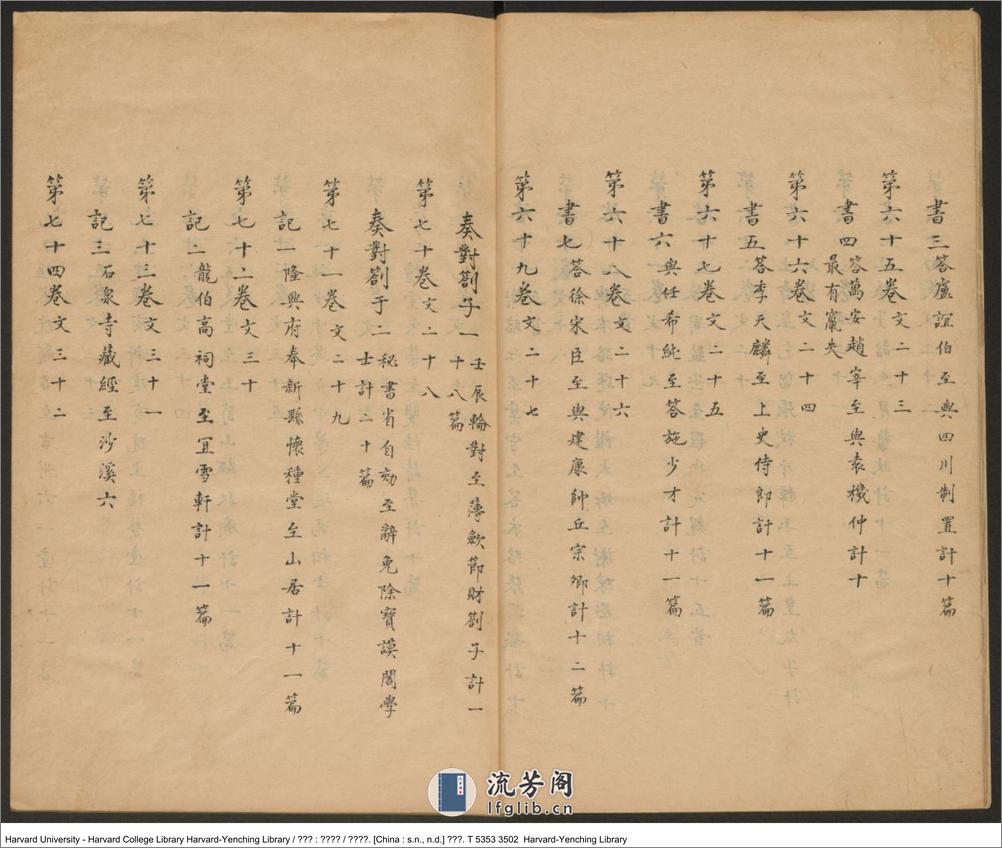 書三 答盧誼伯至與四川制置計十篇
第六十五卷文二十三
書四 答萬安趙宰至與袁機仲計十
最有竄失
第六十六卷文二十四
書五 答李天麟至上史侍郎計十一篇
第六十七卷文二十五
書六 與任希純至答施少才計十一篇
第六十八卷文二十六
書七 答徐宋臣至與建康帥丘宗卿計十二篇
第六十九卷文二十七
奏對劄子一 壬辰輪對至薄斂節財劄子計一
十八篇
第七十卷文二十八
奏對劄子二 秘書省自劾至辭免除寶謨閣學
士計二十篇
第七十一卷文二十九
記一 隆興府奉新縣懷種堂至山居計十一篇
第七十二卷文三十
記二 龍伯高祠堂至冝雪軒計十一篇
第七十三卷文三十一
記三 石泉寺藏經至沙溪六
第七十四卷文三十二
流芳阁
lfglib.cn
Harvard University - Harvard College Library Harvard-Yenching Library / ??? : ???? / ????. [China : s.n., n.d.] ???. T 5353 3502 Harvard-Yenching Library